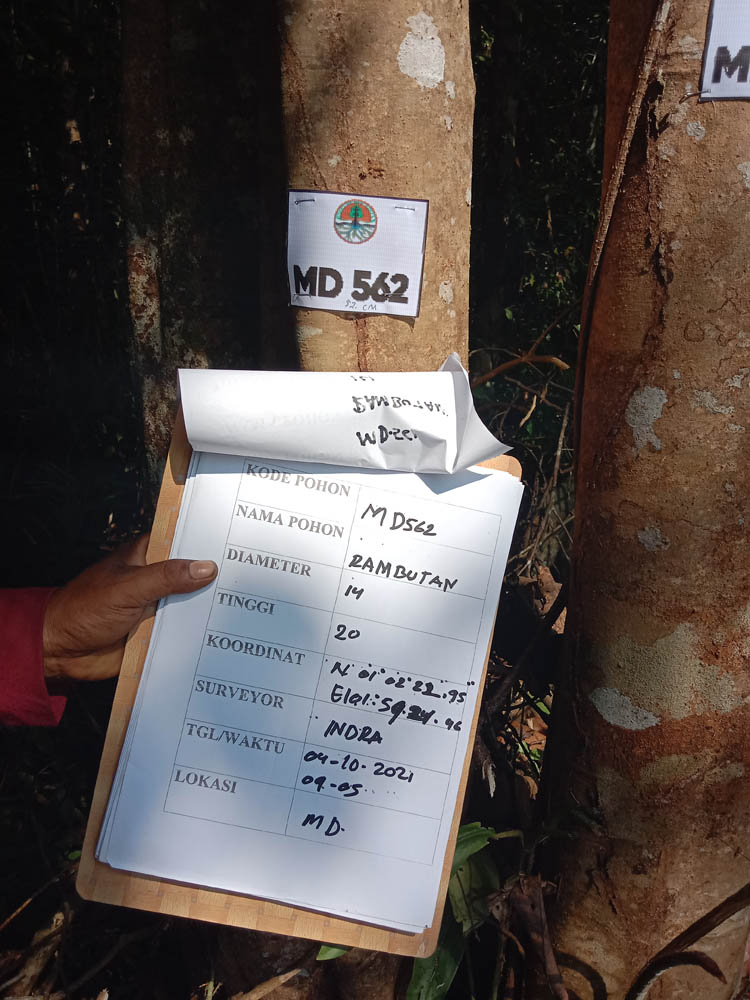 MD 562
M
KODE POHON MD562
NAMA POHON RAMBUTAN
DIAMETER 14
TINGGI 20
KOORDINAT N 01°02'22.95"
E101:59.24.46
SURVEYOR INDRA
TGL/WAKTU 04-10-2021
09-05
LOKASI MD.